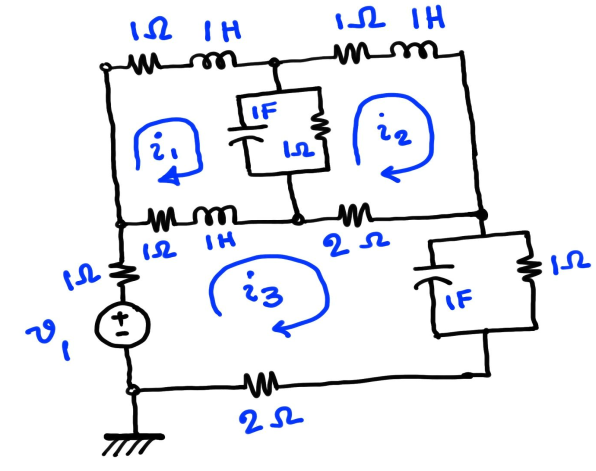 1Ω 1H 1Ω 1H
1F
1Ω
i₁
i₂
1Ω 1H
2Ω
1Ω
i₃
1F
1Ω
+
−
v₁
2Ω